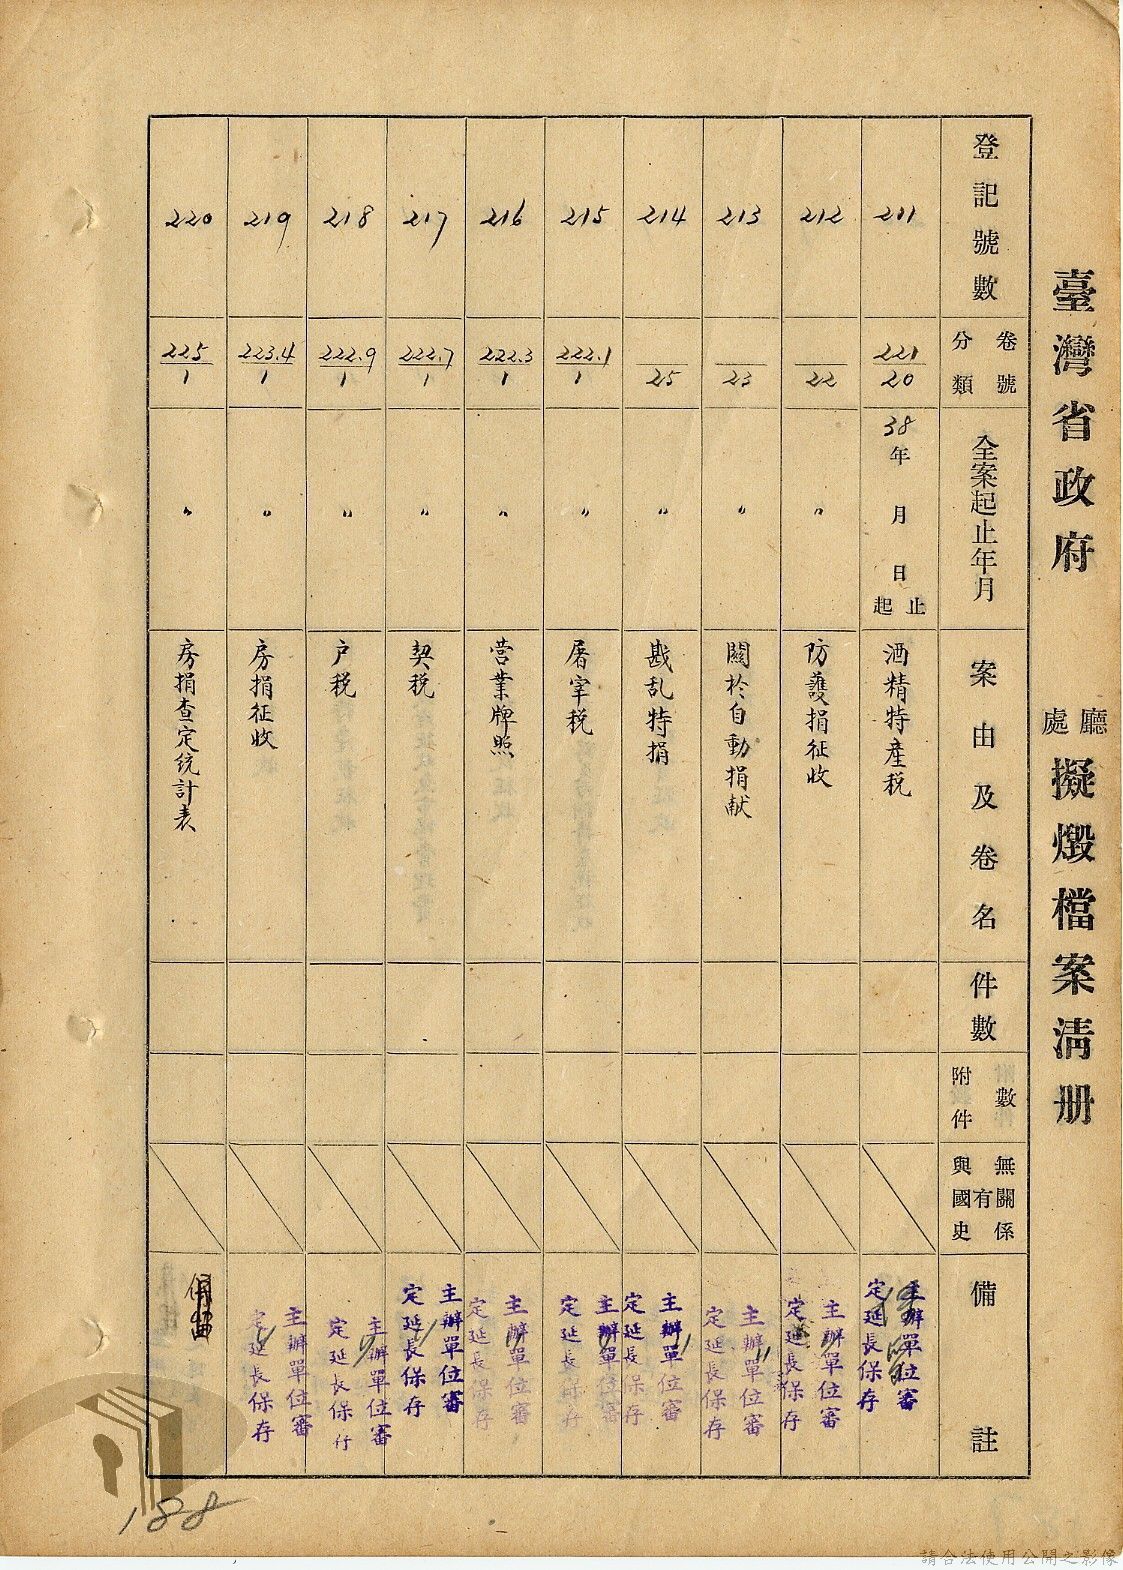 臺灣省政府 廳處 擬燬檔案清册
登記號數
分類 卷號
全案起止年月
案由及卷名
件數
附件 數
與國史 有 無關係
備註
211
221/20
38年 月 日 起止
酒精特產稅
主辦單位審定延長保存
212
22
〃
防護捐征收
主辦單位審定延長保存
213
23
〃
關於自動捐献
主辦單位審定延長保存
214
25
〃
戡乱特捐
主辦單位審定延長保存
215
222.1/1
〃
屠宰稅
主辦單位審定延長保存
216
222.3/1
〃
营業牌照
主辦單位審定延長保存
217
222.7/1
〃
契稅
主辦單位審定延長保存
218
222.9/1
〃
户稅
主辦單位審定延長保存
219
223.4/1
〃
房捐征收
主辦單位審定延長保存
220
225/1
〃
房捐查定统計表
188
請合法使用公開之影像